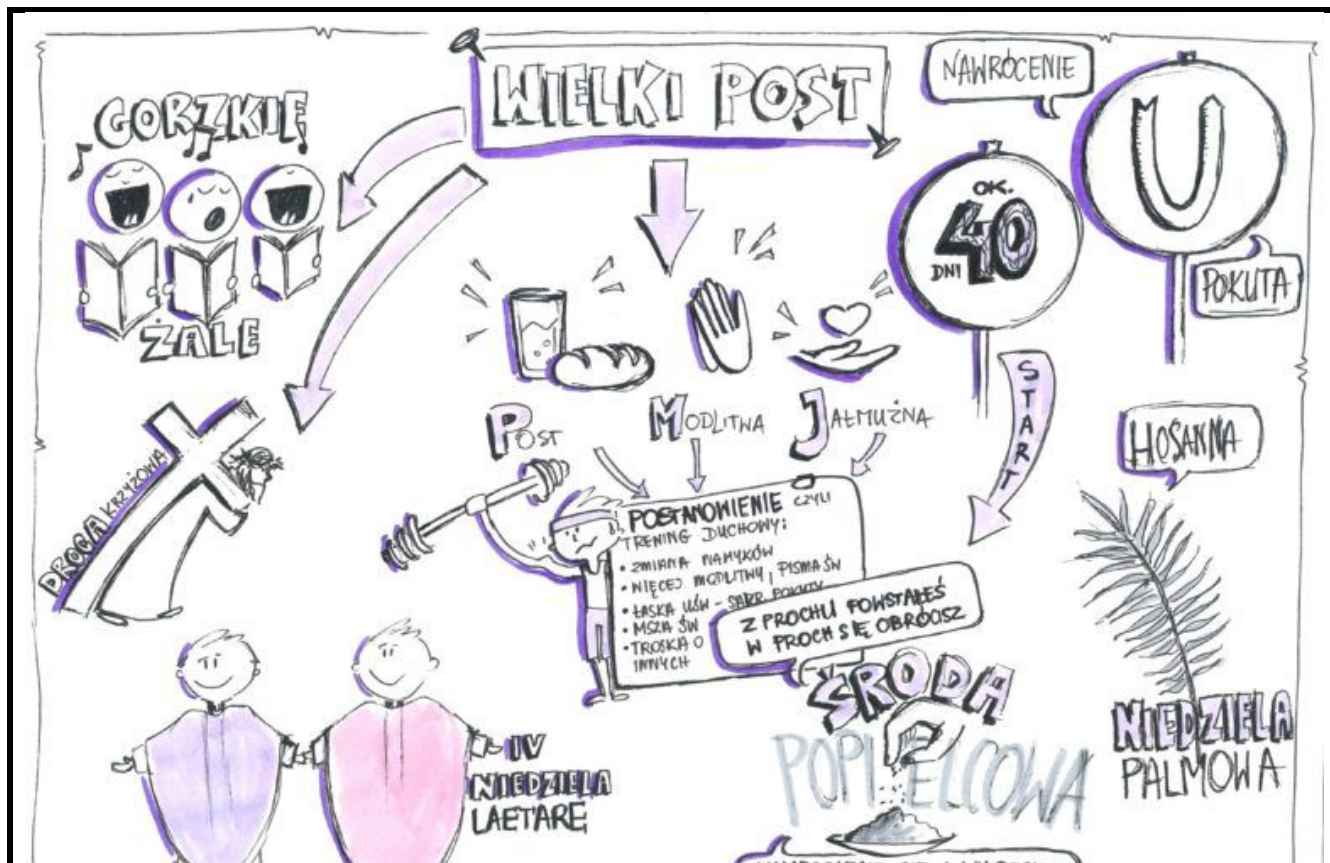 WIELKI POST
GORZKIE
ŻALE
NAWRÓCENIE
U
POKUTA
OK.
40
DNI
START
DROGA KRZYŻOWA
POST
MODLITWA
JAŁMUŻNA
POSTANOWIENIE CZYLI
TRENING DUCHOWY:
• ZMIANA NAWYKÓW
• WIĘCEJ MODLITWY, PISMA ŚW
• ŁASKA UŚW - SAKR. POKUTY
• MSZA ŚW
• TROSKA O
INNYCH
Z PROCHU POWSTAŁEŚ
W PROCH SIĘ OBRÓCISZ
ŚRODA
POPIELCOWA
HOSANNA
NIEDZIELA
PALMOWA
IV
NIEDZIELA
LAETARE